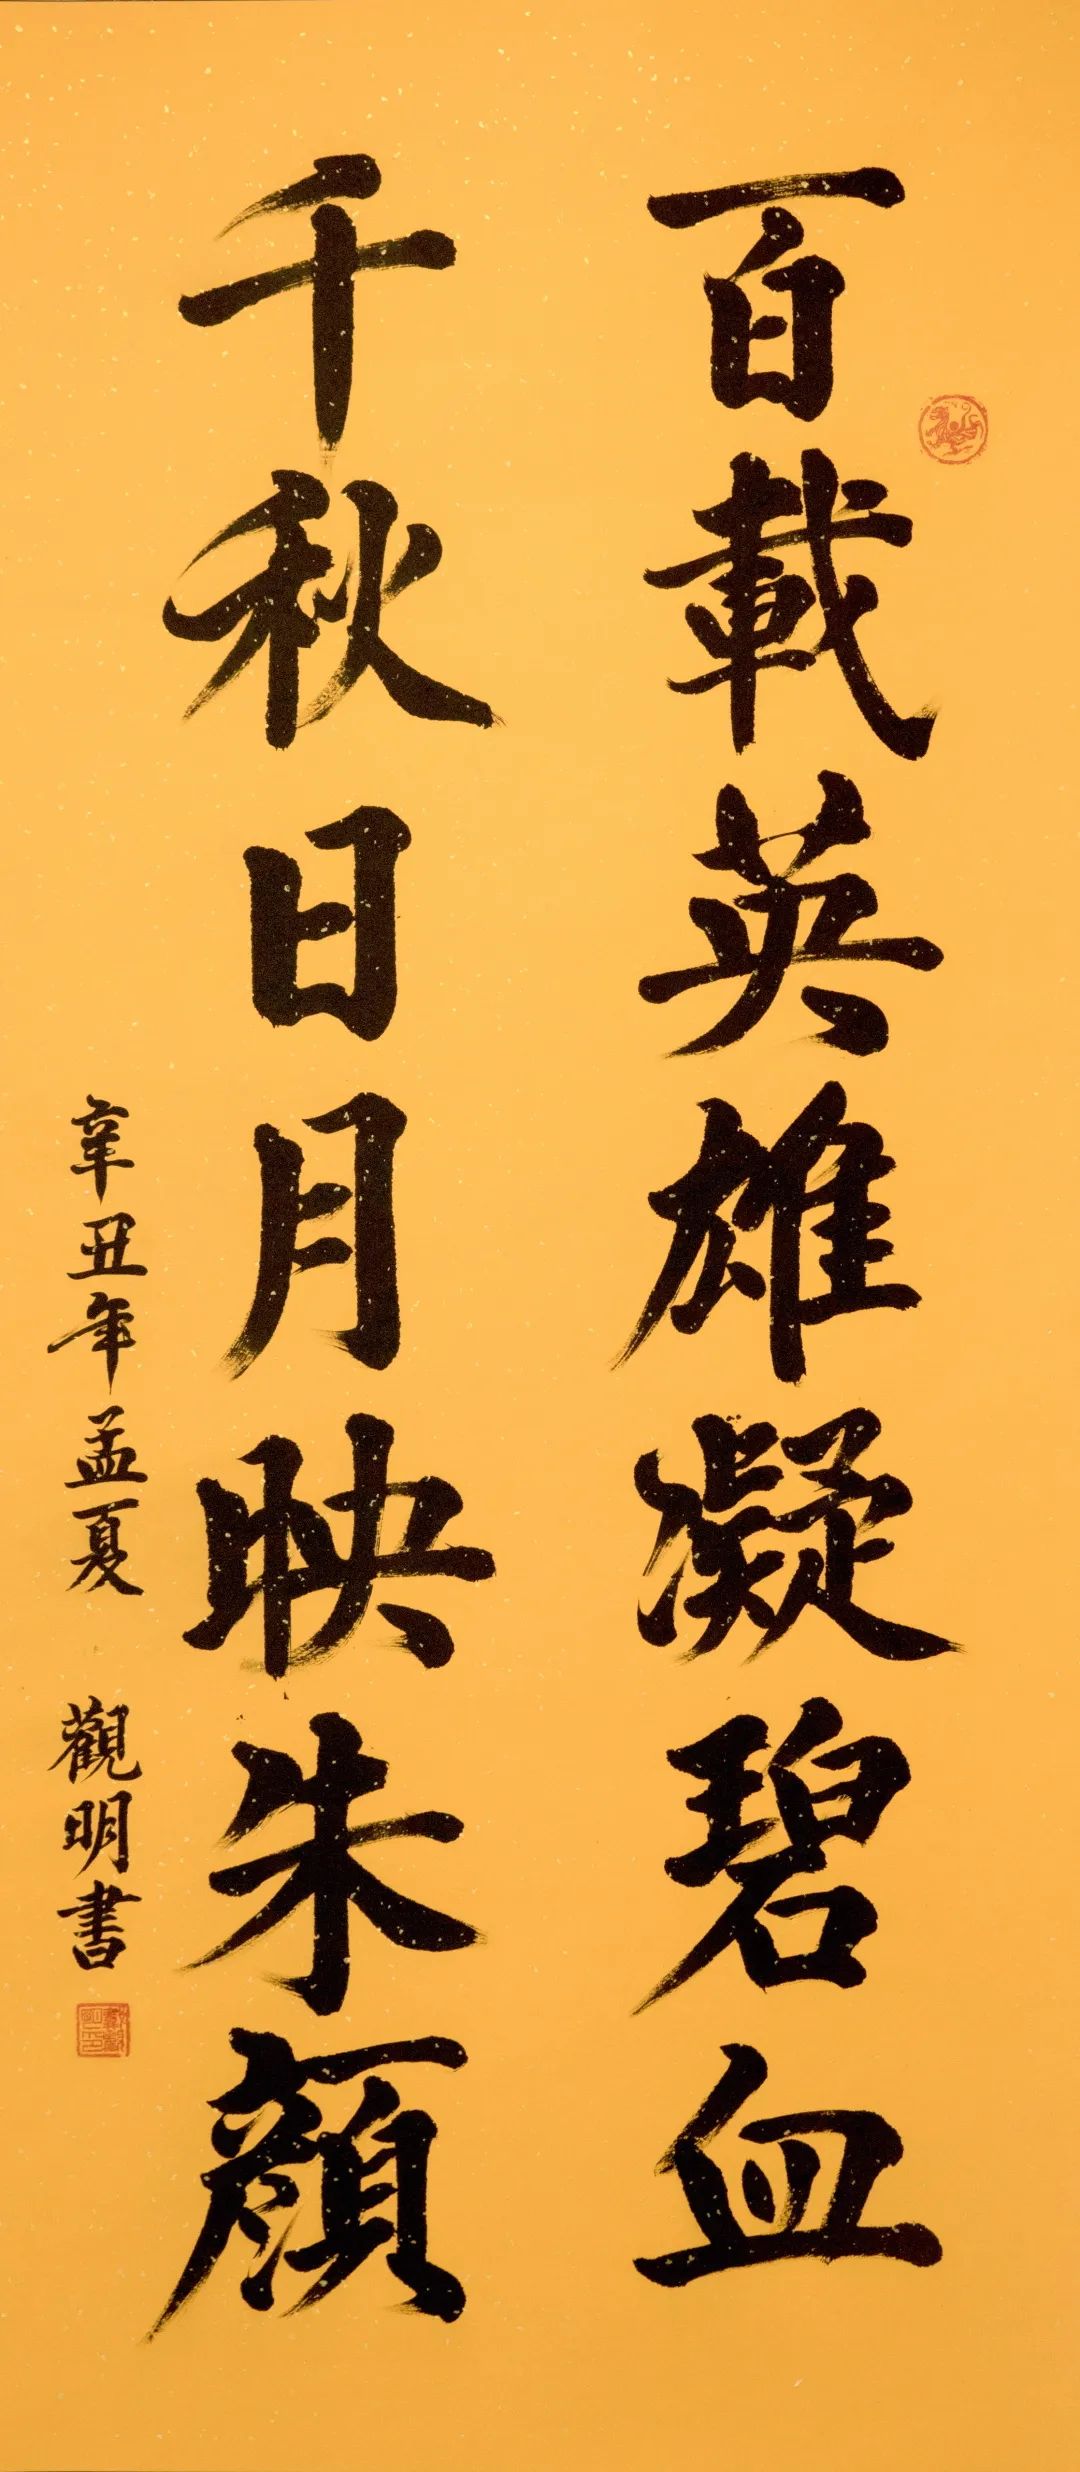 百載英雄凝碧血
千秋日月映朱顏
辛丑年孟夏 觀明書